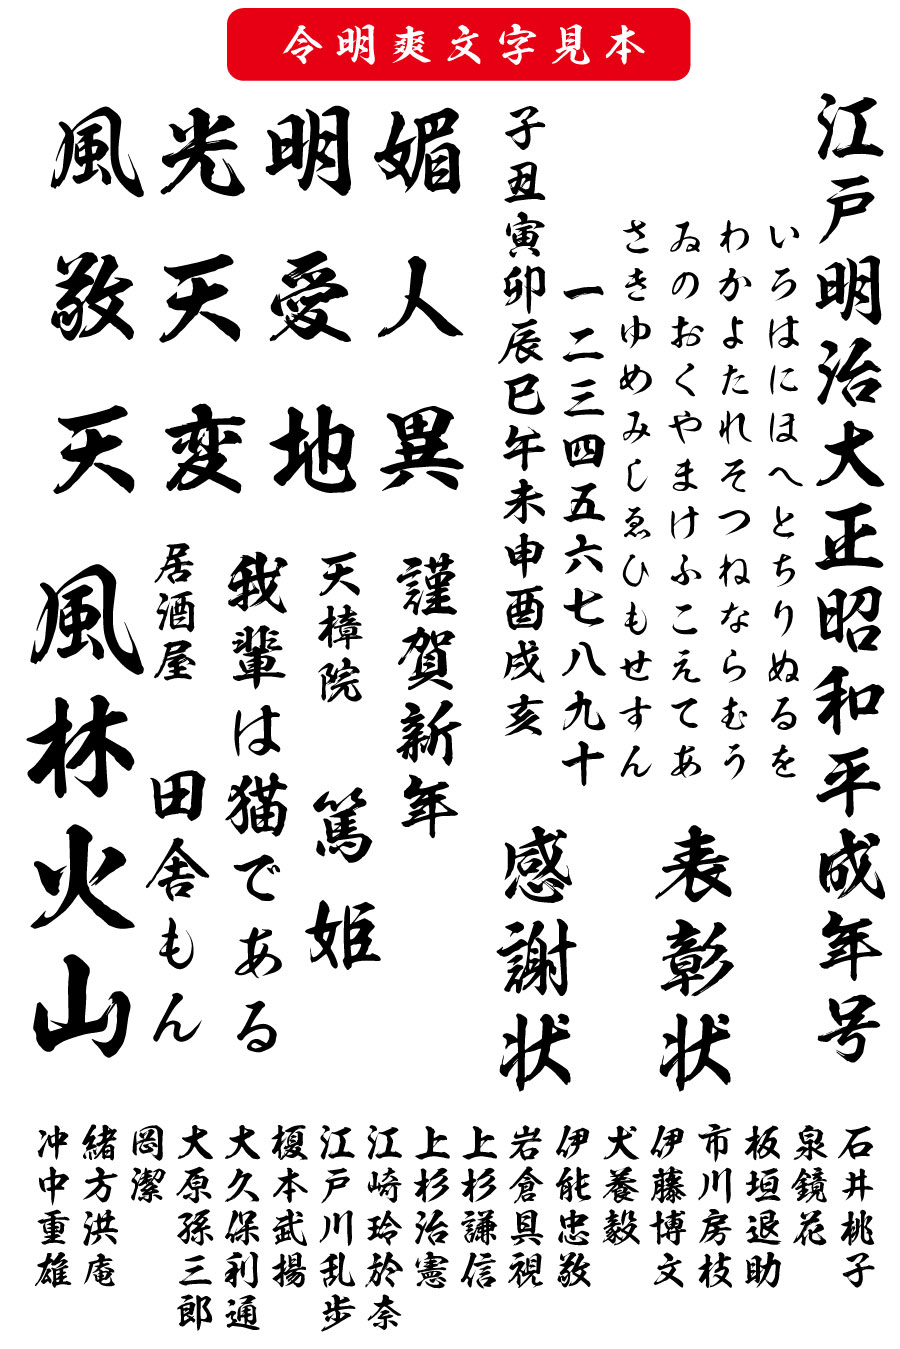 令明爽文字見本
江戸明治大正昭和平成年号
いろはにほへとちりぬるを
わかよたれそつねならむう
ゐのおくやまけふこえてあ
さきゆめみしゑひもせすん
表彰状
一二三四五六七八九十
子丑寅卯辰巳午未申酉戌亥
感謝状
風光明媚
敬天愛人
天変地異
謹賀新年
天樟院
篤姫
我輩は猫である
居酒屋
田舎もん
風林火山
石井桃子
泉鏡花
板垣退助
市川房枝
伊藤博文
犬養毅
伊能忠敬
岩倉具視
上杉謙信
上杉治憲
江崎玲於奈
江戸川乱歩
榎本武揚
大久保利通
大原孫三郎
岡潔
緒方洪庵
冲中重雄